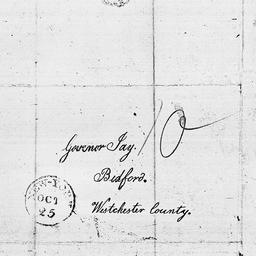 Governor Jay.
10
Bedford.
Westchester County.
NEW-YORK
OCT
25